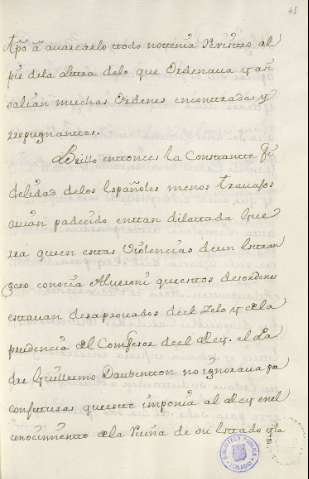 48
tpõ a auasearlo todo no tenia Permiso al
pie dela letra delo que Ordenaua y asi
salian muchas Ordenes encontradas y
repugnantes.
Brillo entonces la Constante fi
delidad delos Españoles menos trauajos
auian padecido en tan dilatada Guer
ra que en estas Violencias de un Estran
gero conocia Alueroni que estos desordenes
estauan desaprouados del Zelo y dela
prudencia del Comfesor del Rey. el Pa
dre Guillermo Daubenton no ignoraua pa
que esto imponia al Rey en el
conocimiento dela Ruina de su Estado y la
BIBLIOTECA PUBLICA